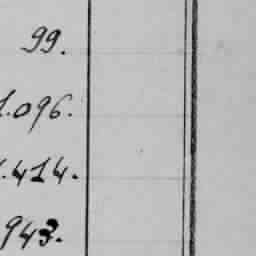 99.
1.096.
1.414.
943.